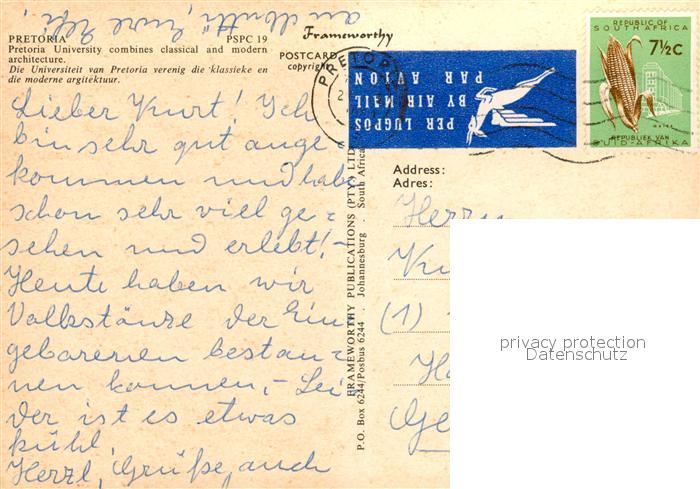 PRETORIA PSPC 19
Pretoria University combines classical and modern
architecture.
Die Universiteit van Pretoria verenig die klassieke en
die moderne argitektuur.
Frameworthy
POSTCARD
copyright
PRETORI
PER LUGPOS
BY AIR MAIL
PAR AVION
REPUBLIC OF
SOUTH AFRICA
7½C
REPUBLIEK VAN
SUID-AFRIKA
Lieber Kurt! Ich
bin sehr gut ange=
kommen und habe
schon sehr viel ge=
sehen und erlebt! –
Heute haben wir
Volkstänze der Ein
gebarenen bestau=
nen können, – Lei
der ist es etwas
kühl.
Herzl. Grüße, auch
an Mutti, Eure
FRAMEWORTHY PUBLICATIONS (PTY.) LTD.
P.O. Box 6244/Posbus 6244 . Johannesburg . South Africa
Address:
Adres:
Herrn
Ku
(1)
Ge
privacy protection
Datenschutz